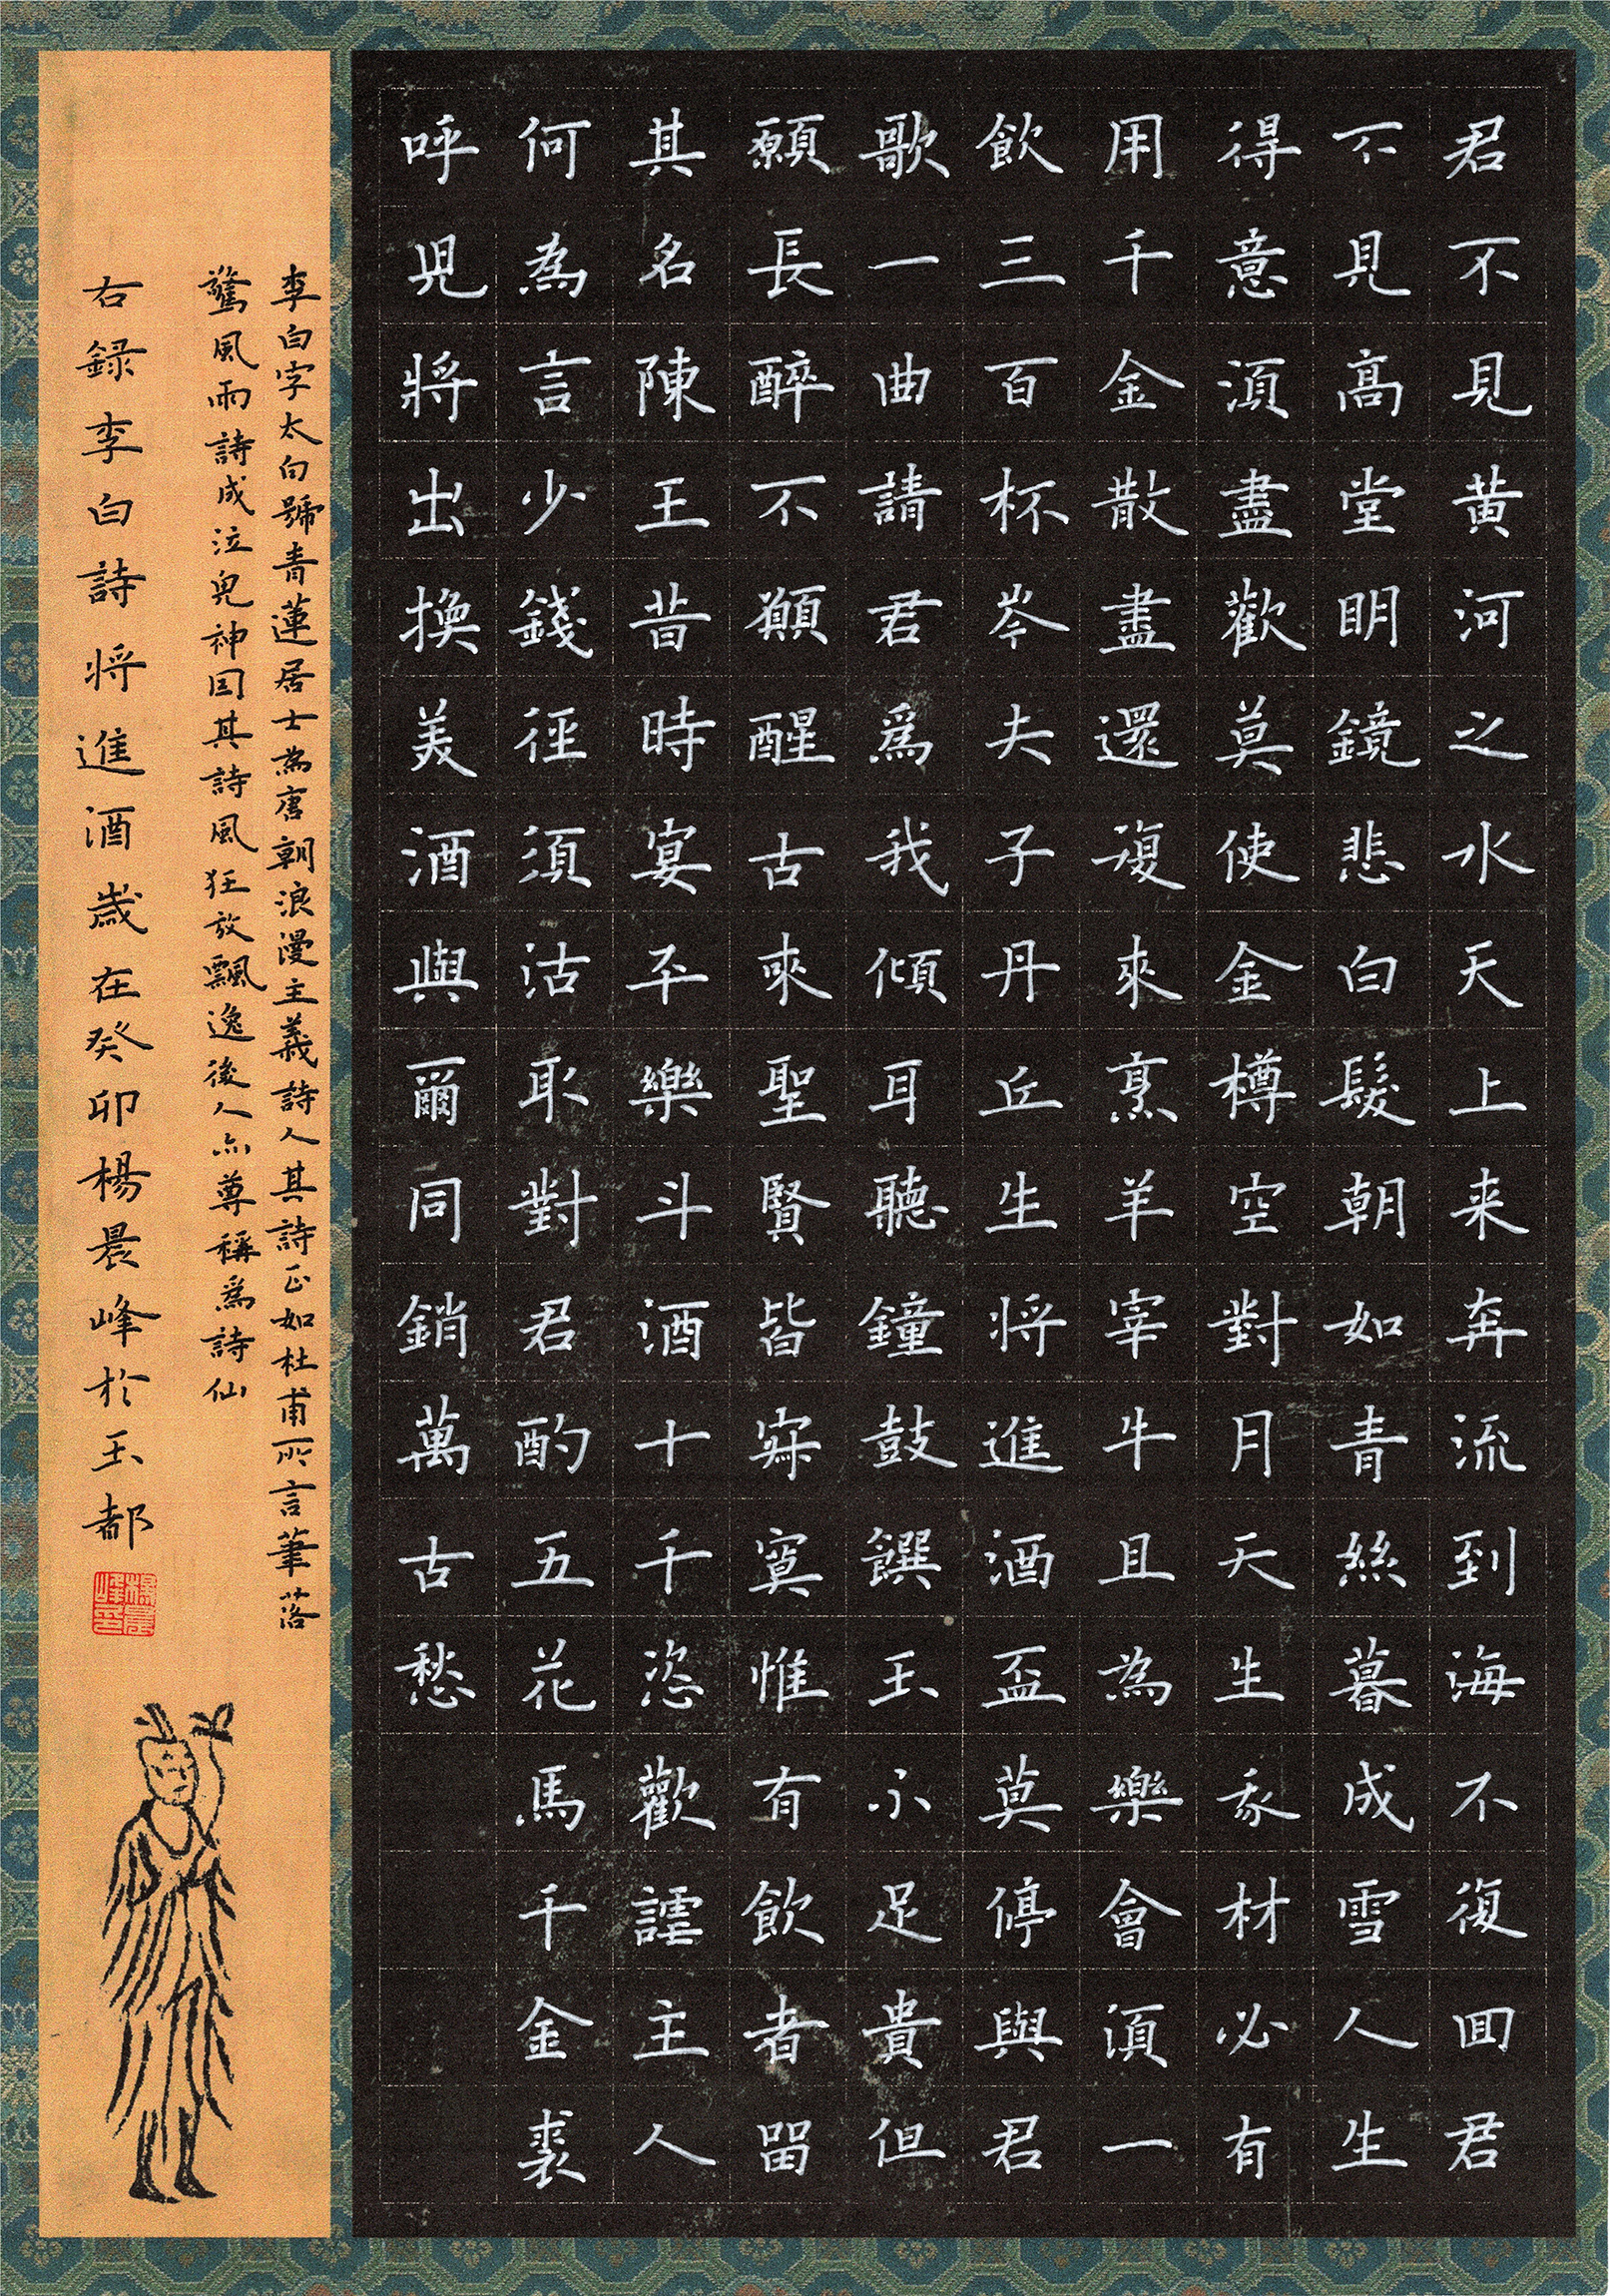 君不見黄河之水天上来奔流到海不復回君
不見高堂明鏡悲白髮朝如青絲暮成雪人生
得意須盡歡莫使金樽空對月天生我材必有
用千金散盡還復來烹羊宰牛且為樂會須一
飲三百杯岑夫子丹丘生將進酒盃莫停與君
歌一曲請君為我傾耳聽鐘鼓饌玉不足貴但
願長醉不願醒古來聖賢皆寂寞惟有飲者留
其名陳王昔時宴平樂斗酒十千恣歡謔主人
何為言少錢徑須沽取對君酌五花馬千金裘
呼兒將出換美酒與爾同銷萬古愁
李白字太白號青蓮居士為唐朝浪漫主義詩人其詩正如杜甫所言筆落
驚風雨詩成泣鬼神因其詩風狂放飄逸後人亦尊稱為詩仙
右録李白詩將進酒歲在癸卯楊晨峰於玉都
楊晨峰印